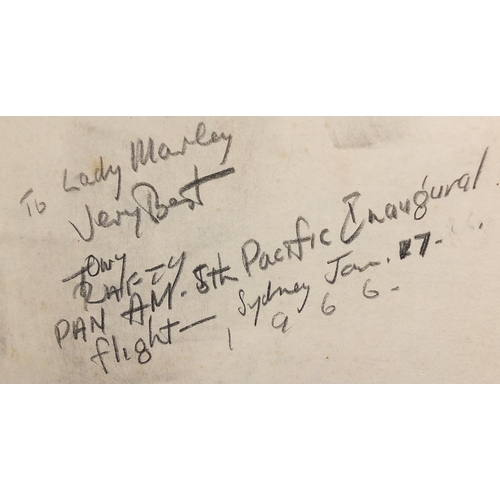 To Lady Marley
Very Best
Tony
RAFTY
PAN AM. 8th Pacific Inaugural.
flight — Sydney Jan. 17 -
1966.